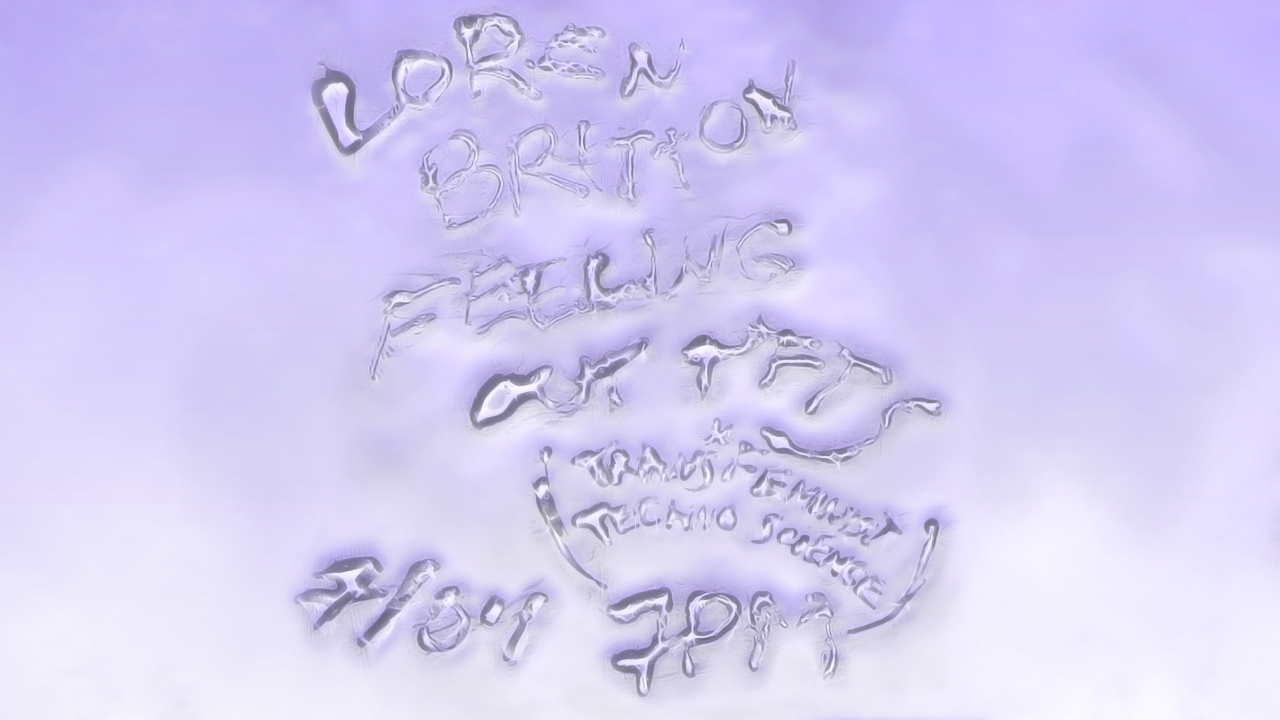 LOREN
BRITTON
FEELING
OUT TFTS
(TRANS*FEMINIST
TECHNO SCIENCE)
7PM